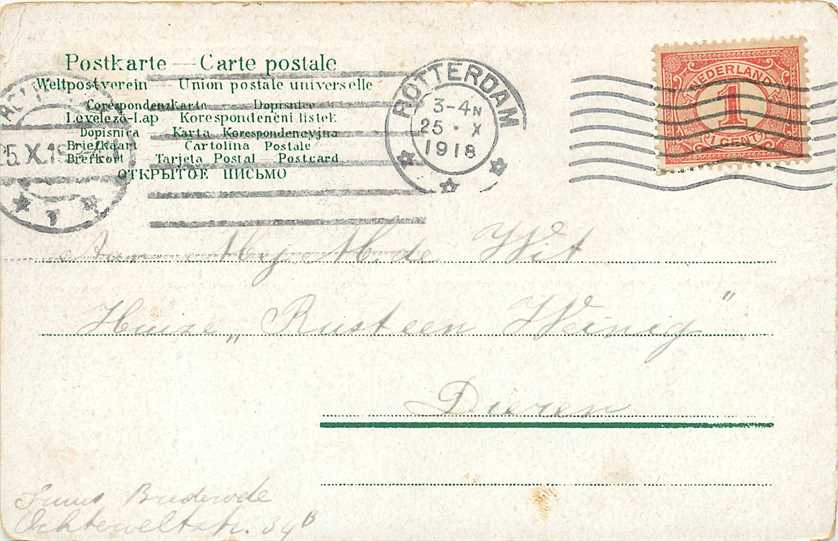 Postkarte — Carte postale
Weltpostverein — Union postale universelle
Corespondenzkarte — Dopisnice
Levelező-Lap Korespondeneni listek
Dopisnica Karta Korespondencyjna
Briefkaart Cartolina Postale
Brefkort Tarjeta Postal Postcard
ОТКРЫТОЕ ПИСЬМО
5.X.18
ROTTERDAM
3-4N
25 · X
1918
NEDERLAND
1
CENT
Aan Mej Mode Wit
Huize „Rust een Weinig"
Dieren
Brederode
34 b